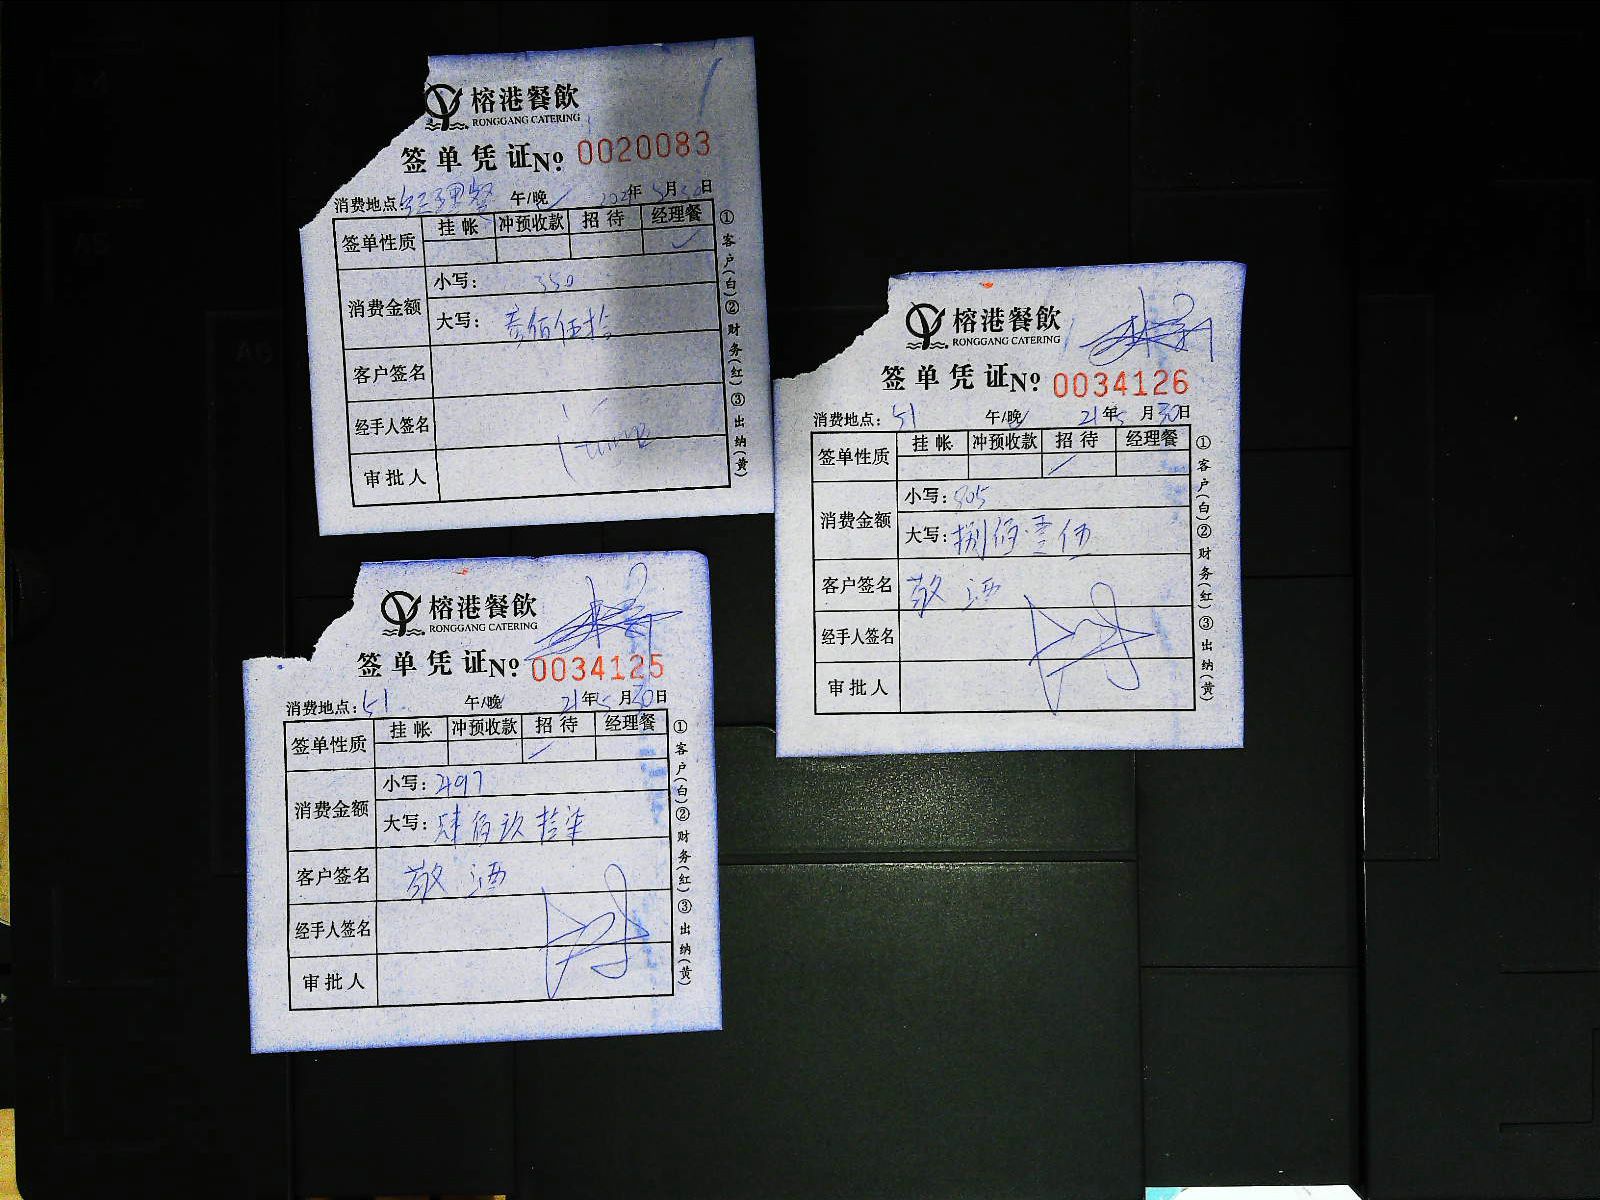 榕港餐飲
RONGGANG CATERING
签单凭证№ 0020083
消费地点：经理餐 午/晚 2021年5月30日
签单性质 挂帐 冲预收款 招待 经理餐 ✓
消费金额 小写：350
大写：叁佰伍拾
客户签名
经手人签名
审批人
①客户(白)②财务(红)③出纳(黄)
榕港餐飲
RONGGANG CATERING
签单凭证№ 0034126
消费地点：51 午/晚 21年5月30日
签单性质 挂帐 冲预收款 招待 ✓ 经理餐
消费金额 小写：805
大写：捌佰零伍
客户签名 敬酒
经手人签名
审批人
①客户(白)②财务(红)③出纳(黄)
榕港餐飲
RONGGANG CATERING
签单凭证№ 0034125
消费地点：51 午/晚 21年5月30日
签单性质 挂帐 冲预收款 招待 ✓ 经理餐
消费金额 小写：497
大写：肆佰玖拾柒
客户签名 敬酒
经手人签名
审批人
①客户(白)②财务(红)③出纳(黄)